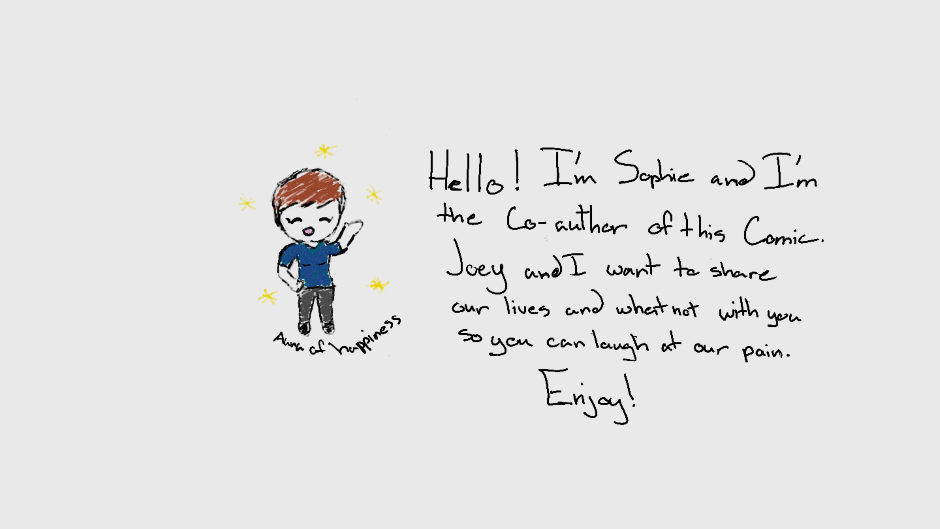 Hello! I'm Sophie and I'm
the Co-author of this Comic.
Joey and I want to share
our lives and whatnot with you
so you can laugh at our pain.
Enjoy!
Aura of happiness